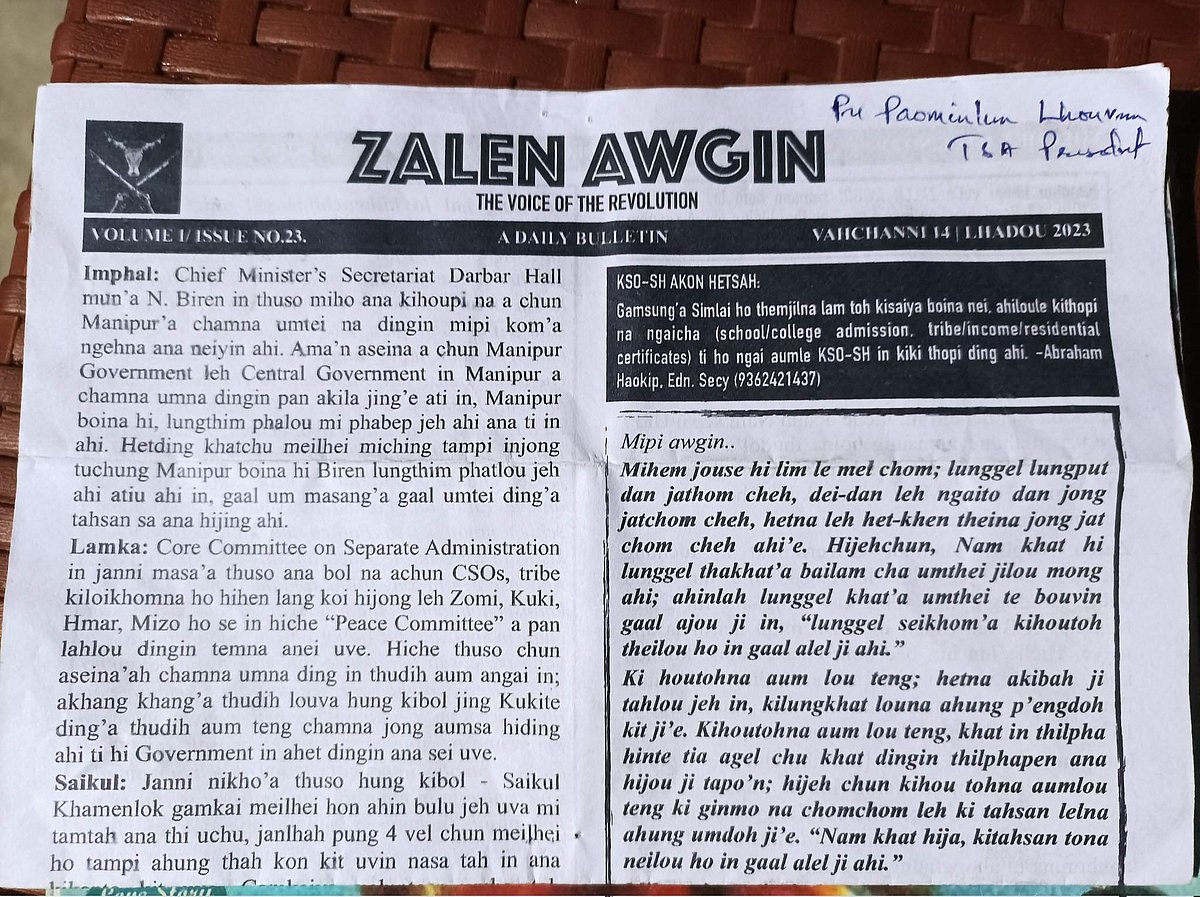 Pu Paominlun Lhouvum
TSA
ZALEN AWGIN
THE VOICE OF THE REVOLUTION
VOLUME I/ ISSUE NO.23.
A DAILY BULLETIN
VAHCHANNI 14 | LHADOU 2023
Imphal: Chief Minister's Secretariat Darbar Hall
mun'a N. Biren in thuso miho ana kihoupi na a chun
Manipur'a chamna umtei na dingin mipi kom'a
ngehna ana neiyin ahi. Ama'n aseina a chun Manipur
Government leh Central Government in Manipur a
chamna umna dingin pan akila jing'e ati in, Manipur
boina hi, lungthim phalou mi phabep jeh ahi ana ti in
ahi. Hetding khatchu meilhei miching tampi injong
tuchung Manipur boina hi Biren lungthim phatlou jeh
ahi atiu ahi in, gaal um masang'a gaal umtei ding'a
tahsan sa ana hijing ahi.
Lamka: Core Committee on Separate Administration
in janni masa'a thuso ana bol na achun CSOs, tribe
kiloikhomna ho hihen lang koi hijong leh Zomi, Kuki,
Hmar, Mizo ho se in hiche “Peace Committee” a pan
lahlou dingin temna anei uve. Hiche thuso chun
aseina'ah chamna umna ding in thudih aum angai in;
akhang khang'a thudih louva hung kibol jing Kukite
ding'a thudih aum teng chamna jong aumsa hiding
ahi ti hi Government in ahet dingin ana sei uve.
Saikul: Janni nikho'a thuso hung kibol - Saikul
Khamenlok gamkai meilhei hon ahin bulu jeh uva mi
tamtah ana thi uchu, janlhah pung 4 vel chun meilhei
ho tampi ahung thah kon kit uvin nasa tah in ana
KSO-SH AKON HETSAH:
Gamsung'a Simlai ho themjilna lam toh kisaiya boina nei, ahiloule kithopi
na ngaicha (school/college admission, tribe/income/residential
certificates) ti ho ngai aumle KSO-SH in kiki thopi ding ahi. -Abraham
Haokip, Edn. Secy (9362421437)
Mipi awgin..
Mihem jouse hi lim le mel chom; lunggel lungput
dan jathom cheh, dei-dan leh ngaito dan jong
jatchom cheh, hetna leh het-khen theina jong jat
chom cheh ahi'e. Hijehchun, Nam khat hi
lunggel thakhat'a bailam cha umthei jilou mong
ahi; ahinlah lunggel khat'a umthei te bouvin
gaal ajou ji in, “lunggel seikhom'a kihoutoh
theilou ho in gaal alel ji ahi.”
Ki houtohna aum lou teng; hetna akibah ji
tahlou jeh in, kilungkhat louna ahung p'engdoh
kit ji'e. Kihoutohna aum lou teng, khat in thilpha
hinte tia agel chu khat dingin thilphapen ana
hijou ji tapo'n; hijeh chun kihou tohna aumlou
teng ki ginmo na chomchom leh ki tahsan lelna
ahung umdoh ji'e. “Nam khat hija, kitahsan tona
neilou ho in gaal alel ji ahi.”